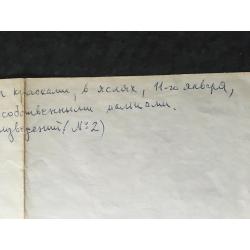 красками, в яслях, 11-го января,
собственными пальцами.
изведений (№2)